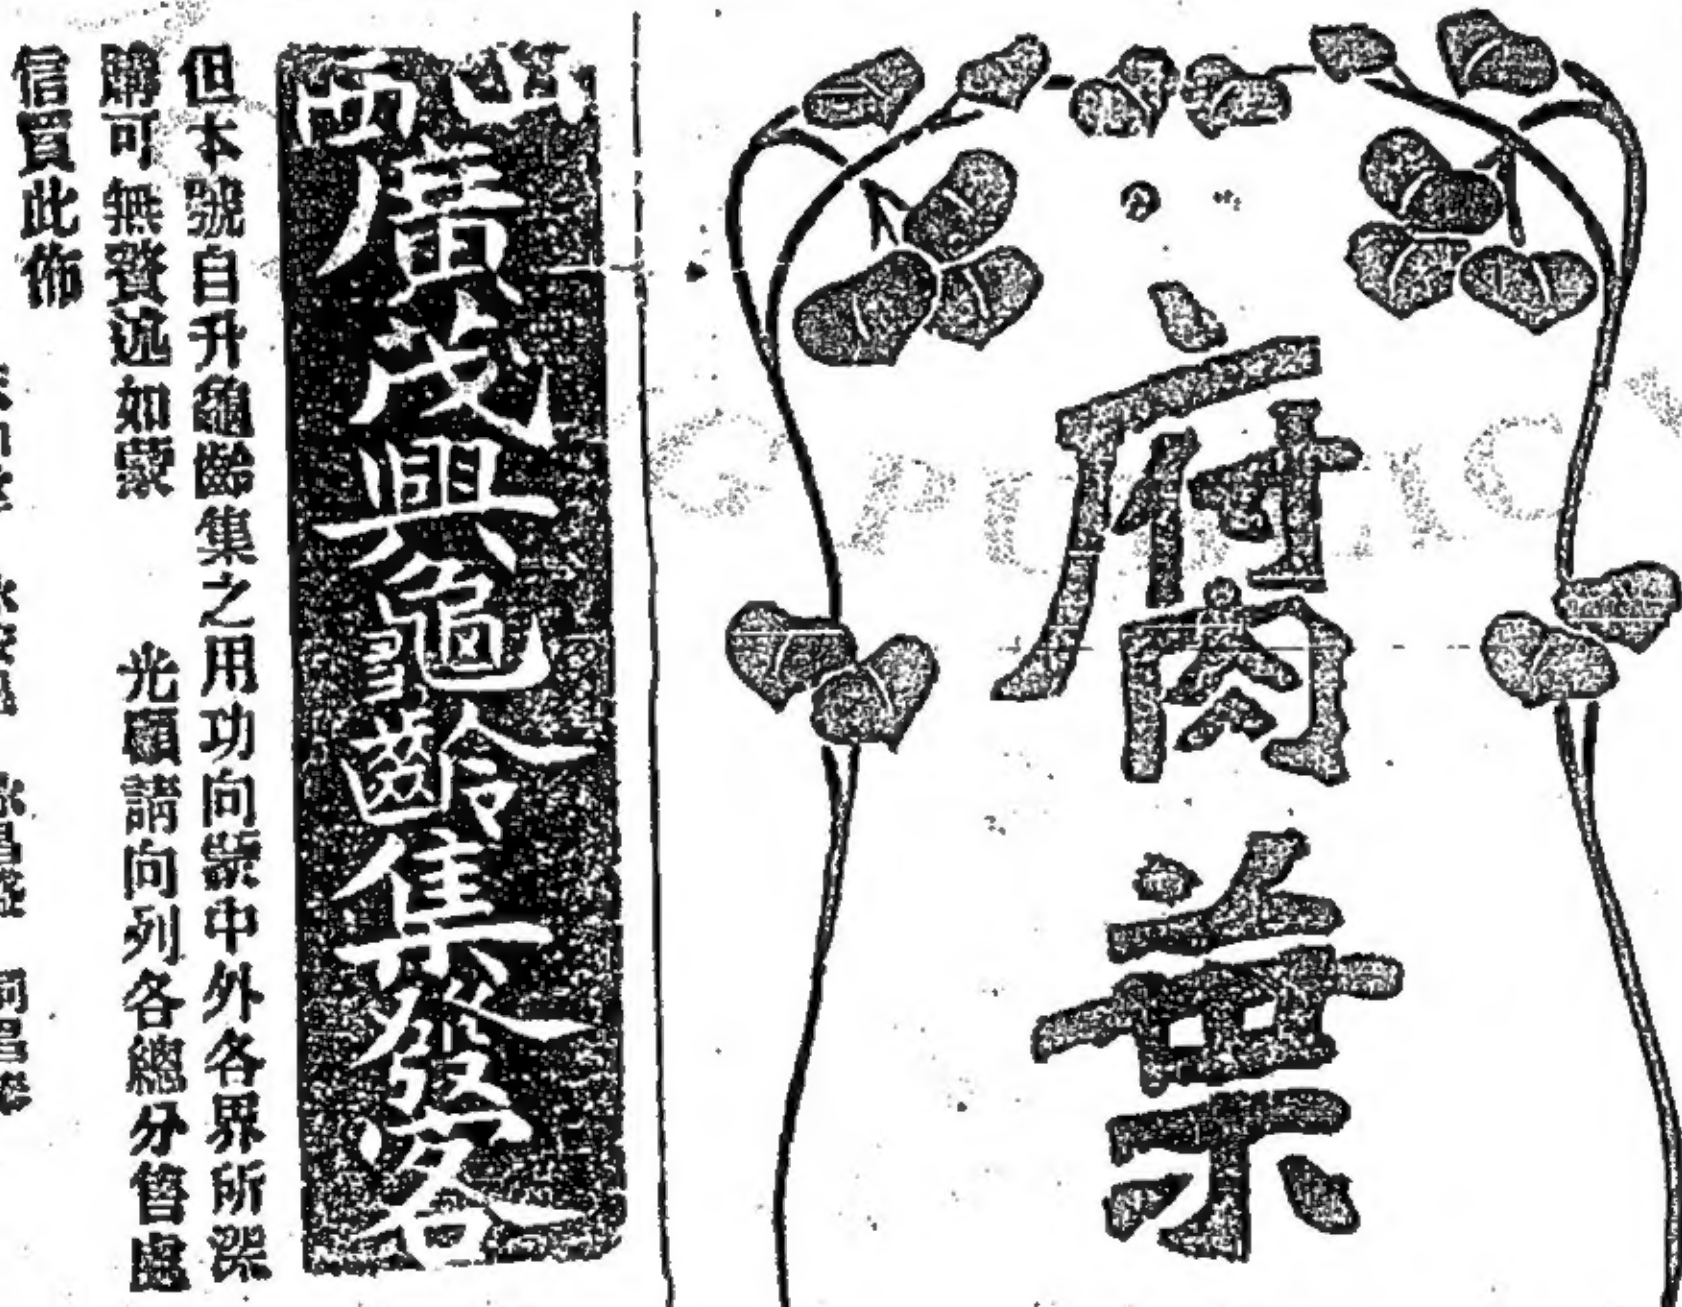 腐
山西廣茂興龜齡集發客
但本號自升龜齡集之用功向蒙中外各界所深
可無贅述如蒙　光顧請向列各總分售處
信買此佈
G PUBLIC